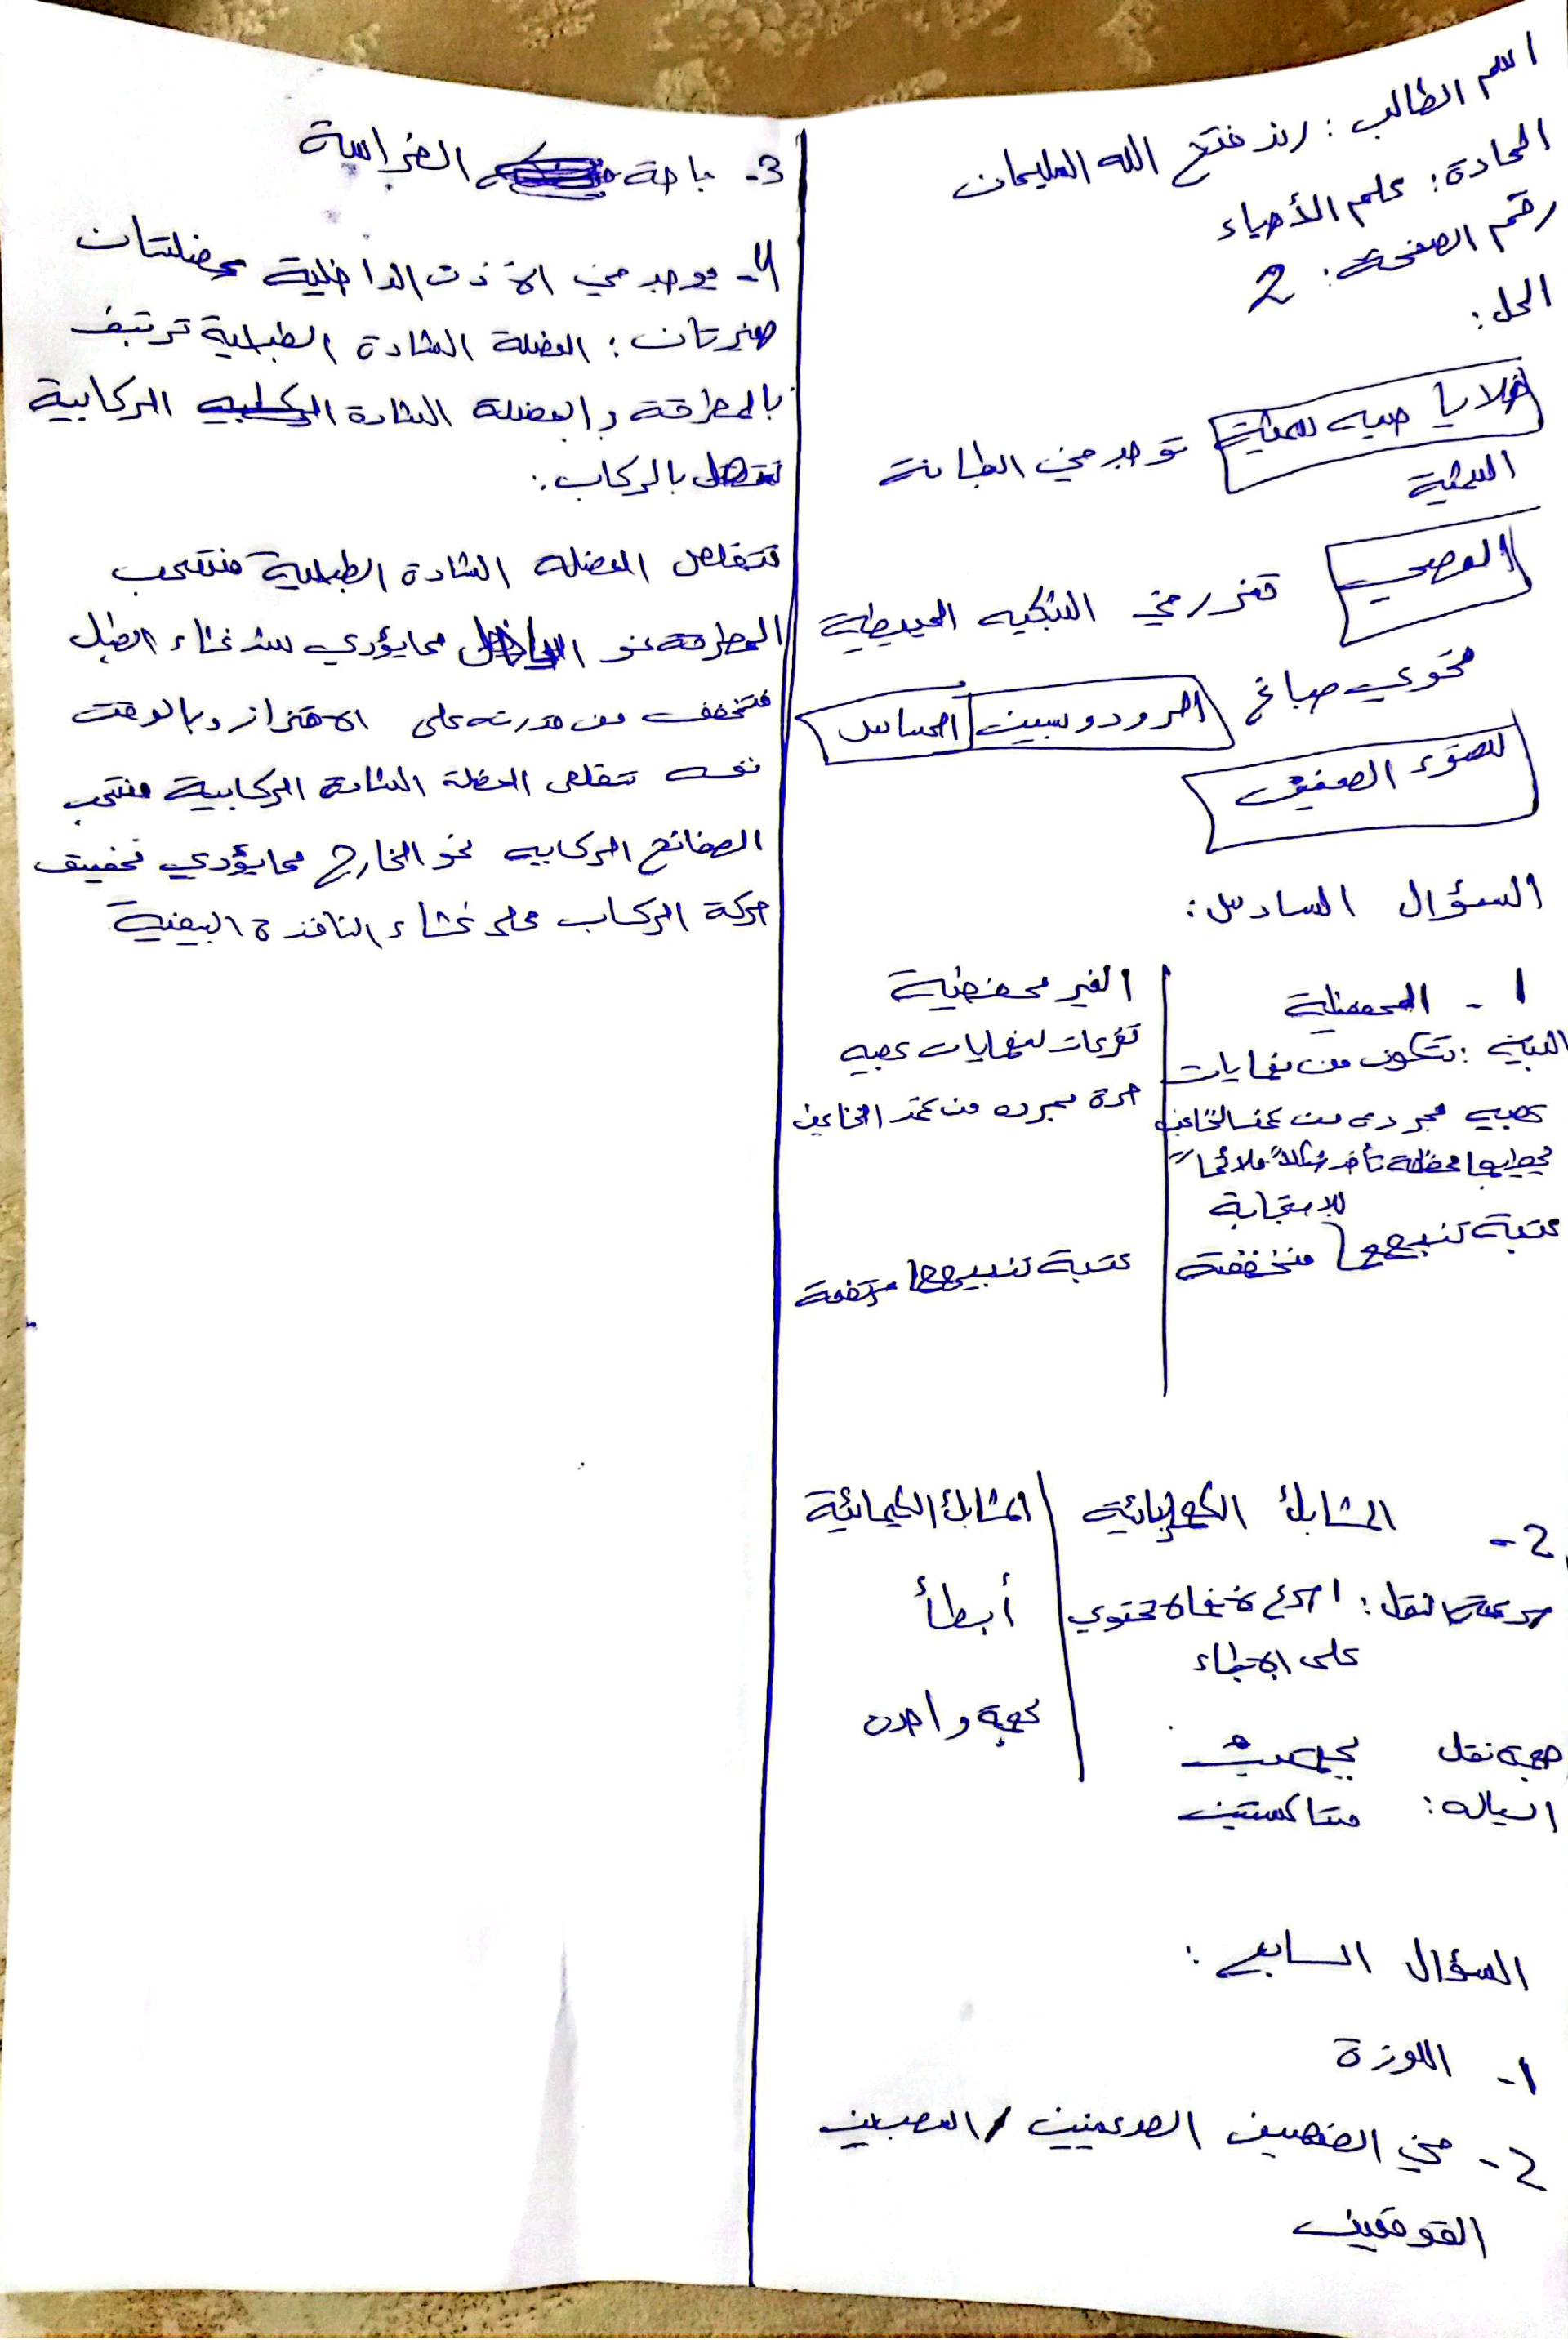 اسم الطالب : رند فتح الله السليمان
المادة : علم الأحياء
رقم الصفحة : 2
الحل :
خلايا حسيه شمية توجد في البطانة
الشمية
العصي تغزر في الشبكيه المحيطية
تحوي صباغ الرودوبسين الحساس
للضوء الضعيف
السؤال السادس :
1 - المحفظية | الغير محفظية
البنية : تتكون من نهايات | تفرعات لنهايات عصبيه
عصبيه مجردى من غمد النخاعين | حرة مجرده من غمد النخاعين
تحيط بها محفظة تأخذ شكلاً ملائماً
للاستجابة
عتبة تنبيهها منخفضة | عتبة تنبيهها مرتفعة
2 - المشابك الكهربائية | المشابك الكيميائية
سرعة النقل : اسرع لانهالا تحتوي | أبطأ
على ابطاء
جهة نقل | بجهة واحده
السياله : متعاكستين
السؤال السابع :
1 - اللوزة
2 - في الفصين الصدغيين / العصبين
القوقعين
3 - باحة الفراسة
4 - يوجد في الاذن الداخلية عضلتان
صغيرتان : العضلة الشادة الطبلية ترتبط
بالمطرقة والعضلة الشادة الركابية
تتصل بالركاب :
تتقلص العضله الشادة الطبلية فتسحب
المطرقة نحو الداخل مما يؤدي شد غشاء الطبل
فتخفف من قدرته على الاهتزاز وبالوقت
نفسه تتقلص العضلة الشادة الركابية فتسحب
الصفائح الركابيه نحو الخارج مما يؤدي تخفيف
حركة الركاب على غشاء النافذة البيضية